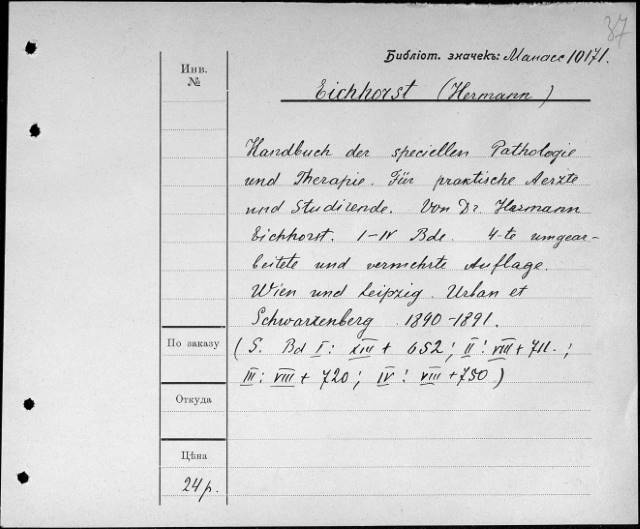 37
Библіот. значекъ: Манасс 10171.
Инв.
№
Eichhorst (Hermann)
Handbuch der speciellen Pathologie
und Therapie. Für praktische Aerzte
und Studirende. Von Dr. Hermann
Eichhorst. I-IV Bde. 4-te umgear-
beitete und vermehrte Auflage.
Wien und Leipzig. Urban et
Schwarzenberg 1890-1891.
По заказу
(S. Bd I: XIII + 652; II: VIII + 711.;
III: VIII + 720; IV: VIII + 750)
Откуда
Цѣна
24 р.